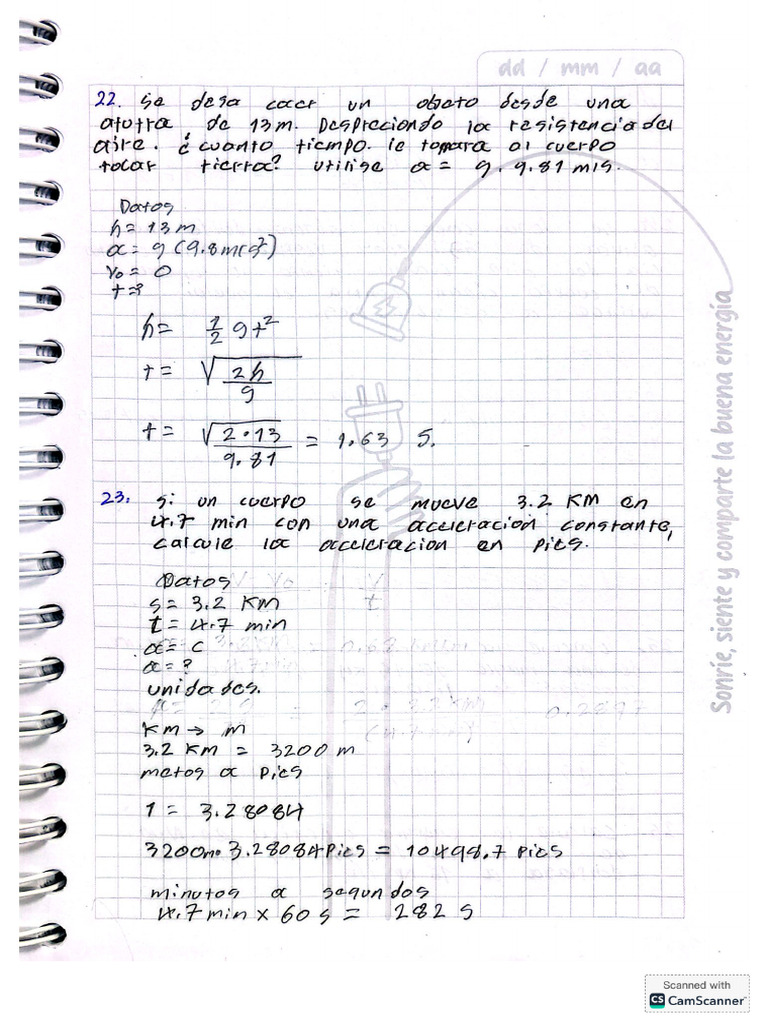 dd / mm / aa
22. se desa caer un objeto desde una
alutra de 13 m. Despreciando la resistencia del
aire. ¿ cuanto tiempo. le tomara al cuerpo
tocar tierra? utilise a = g. 9.81 m/s.
Datos
h = 13 m
a = g (9.8 m/s²)
Vo = 0
t = ?
h = 1/2 gt²
t = √2h/g
t = √2•13/9.81 = 1.63 s.
23. si un cuerpo se mueve 3.2 KM en
4.7 min con una aceleración constante,
calcule la aceleracion en pies.
Datos
s = 3.2 KM
t = 4.7 min
a = c
a = ?
unidades.
Km → m
3.2 KM = 3200 m
metos a pies
1 = 3.28084
3200m• 3.28084 pies = 10498.7 pies
minutos a segundos
4.7 min x 60 s = 282 s
Sonríe, siente y comparte la buena energía
Scanned with
CS CamScanner